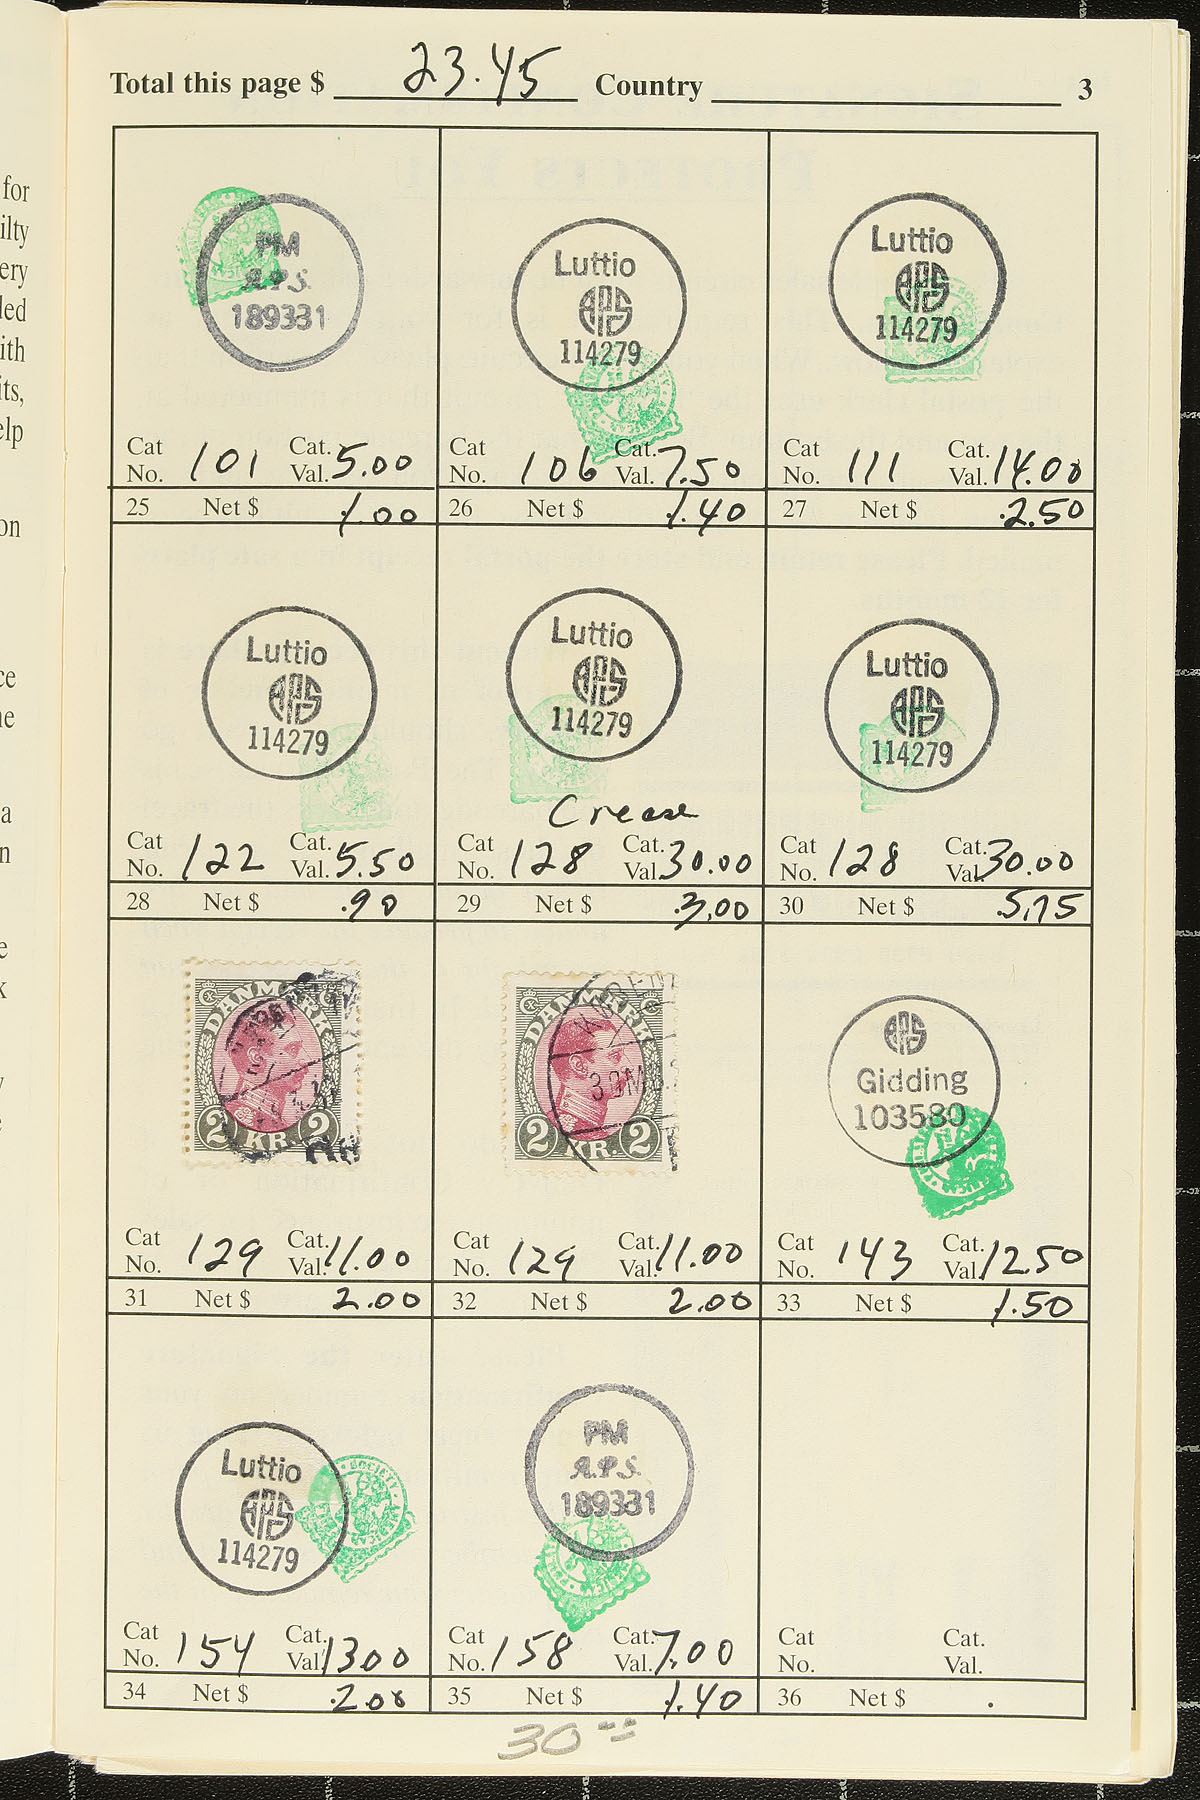 Total this page $ 23.45 Country 3
for
ilty
ery
led
ith
its,
elp
on
ce
ne
a
n
e
k
y
e
PM
A.P.S.
189331
Cat No. 101 Cat. Val. 5.00
25 Net $ 1.00
Luttio
APS
114279
Cat No. 106 Cat. Val. 7.50
26 Net $ 1.40
Luttio
APS
114279
Cat No. 111 Cat. Val. 14.00
27 Net $ 2.50
Luttio
APS
114279
Cat No. 122 Cat. Val. 5.50
28 Net $ .90
Luttio
APS
114279
Crease
Cat No. 128 Cat. Val. 30.00
29 Net $ 3.00
Luttio
APS
114279
Cat No. 128 Cat. Val. 30.00
30 Net $ 5.75
DANMARK
2 KR. 2
Cat No. 129 Cat. Val. 11.00
31 Net $ 2.00
DANMARK
KØBEN
30 M
2 KR. 2
Cat No. 129 Cat. Val. 11.00
32 Net $ 2.00
APS
Gidding
103580
Cat No. 143 Cat. Val. 12.50
33 Net $ 1.50
Luttio
APS
114279
SOCIETY
Cat No. 154 Cat. Val. 1300
34 Net $ .200
PM
A.P.S.
189331
Cat No. 158 Cat. Val. 7.00
35 Net $ 1.40
Cat No. Cat. Val.
36 Net $ .
30